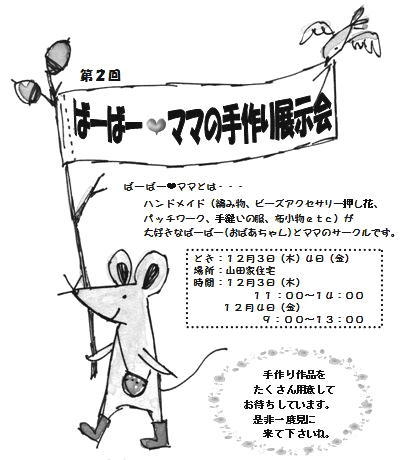 第2回
ばーばー❤ママの手作り展示会
ばーばー❤ママとは・・・
ハンドメイド（編み物、ビーズアクセサリー押し花、
パッチワーク、手縫いの服、布小物ｅｔｃ）が
大好きなばーばー(おばあちゃん)とママのサークルです。
とき：１２月３日（木）４日（金）
場所：山田家住宅
時間：１２月３日（木）
１１：００～１４：００
１２月４日（金）
９：００～１３：００
手作り作品を
たくさん用意して
お待ちしています。
是非一度見に
来て下さいね。